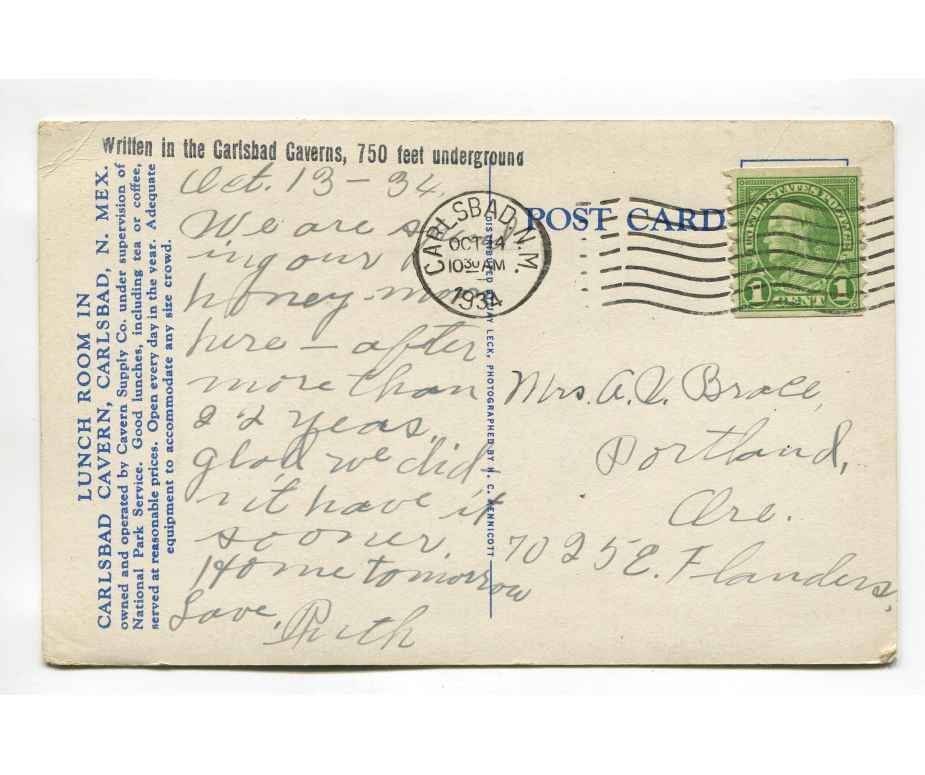 Written in the Carlsbad Caverns, 750 feet underground
LUNCH ROOM IN
CARLSBAD CAVERN, CARLSBAD, N. MEX.
owned and operated by Cavern Supply Co. under supervision of
National Park Service. Good lunches, including tea or coffee,
served at reasonable prices. Open every day in the year. Adequate
equipment to accommodate any size crowd.
Oct. 13-34.
We are
ing our
honey moon
here - after
more than
22 years.
glad we did
n't have it
sooner.
Home tomorrow
Love, Ruth
RAY LECK, PHOTOGRAPHED BY H. C. KENNICOTT
POST CARD
CARLSBAD, N.M.
OCT 14
10 30 AM
1934
UNITED STATES POSTAGE
1 CENT 1
Mrs. A. V. Brace,
Portland,
Ore.
7025 E. Flanders,